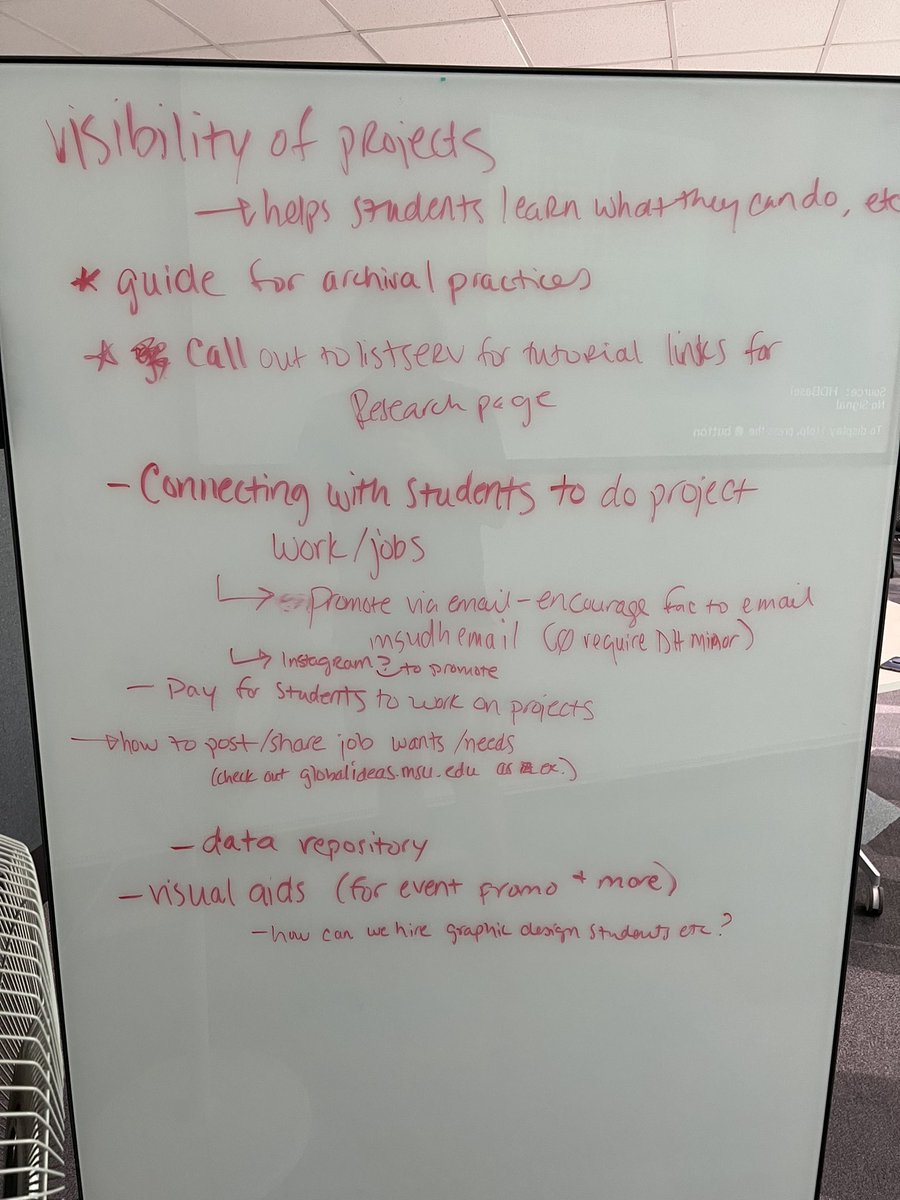 visibility of projects
→ helps students learn what they can do, etc
* guide for archival practices
* call out to listserv for tutorial links for
Research page
- Connecting with students to do project
work/jobs
↳ promote via email - encourage fac to email
msudhemail (∅ require DH minor)
↳ Instagram? to promote
- Pay for students to work on projects
→ how to post/share job wants/needs
(check out globalideas.msu.edu as ex.)
- data repository
- visual aids (for event promo + more)
- how can we hire graphic design students etc?
Source: HDBaseT
No Signal
To display, press the button